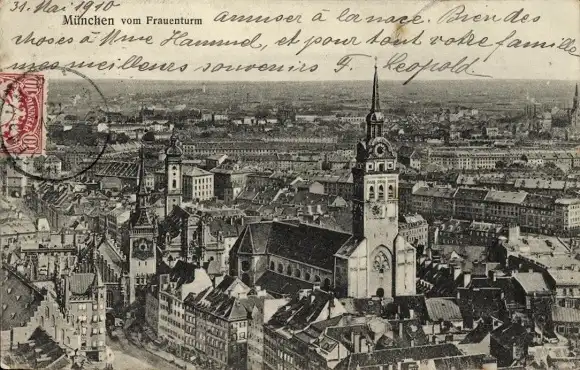 31. Mai 1910
München vom Frauenturm
amuser à la noce. Bien des
choses à Mme Hammel, et pour tout votre famille
mes meilleurs souvenirs F. Leopold.
10
10